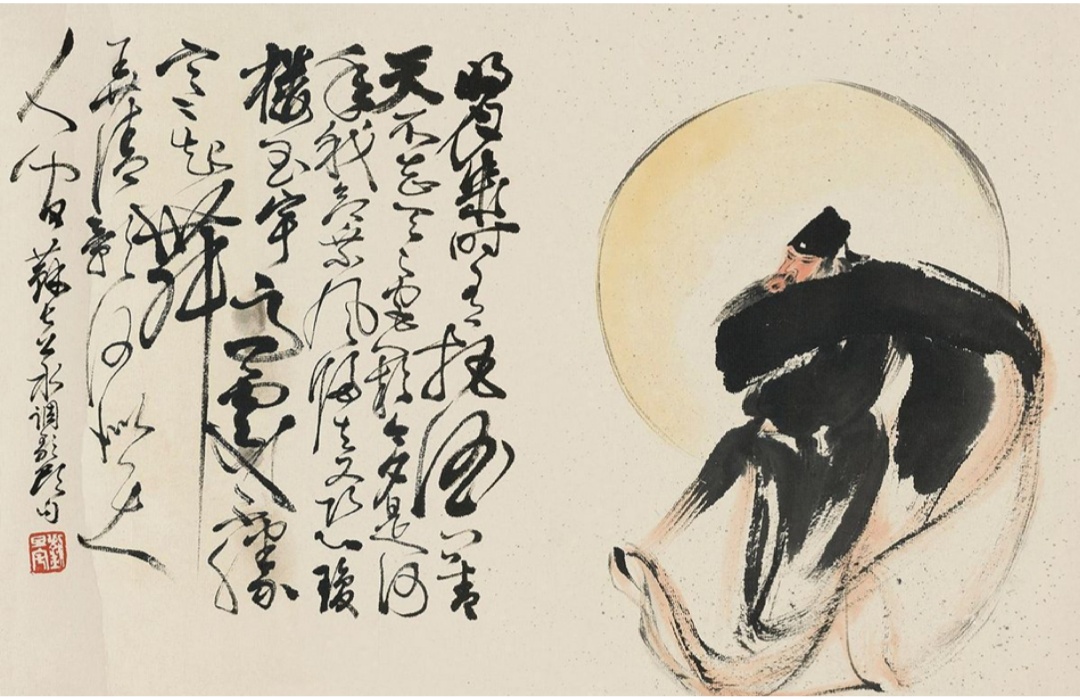 明月幾时有把酒问青
天不知天上宫阙今夕是何
年我欲乘风归去又恐瓊
樓玉宇高處不勝
寒起舞
弄清影何似在
人间 蘇长公水调歌头句